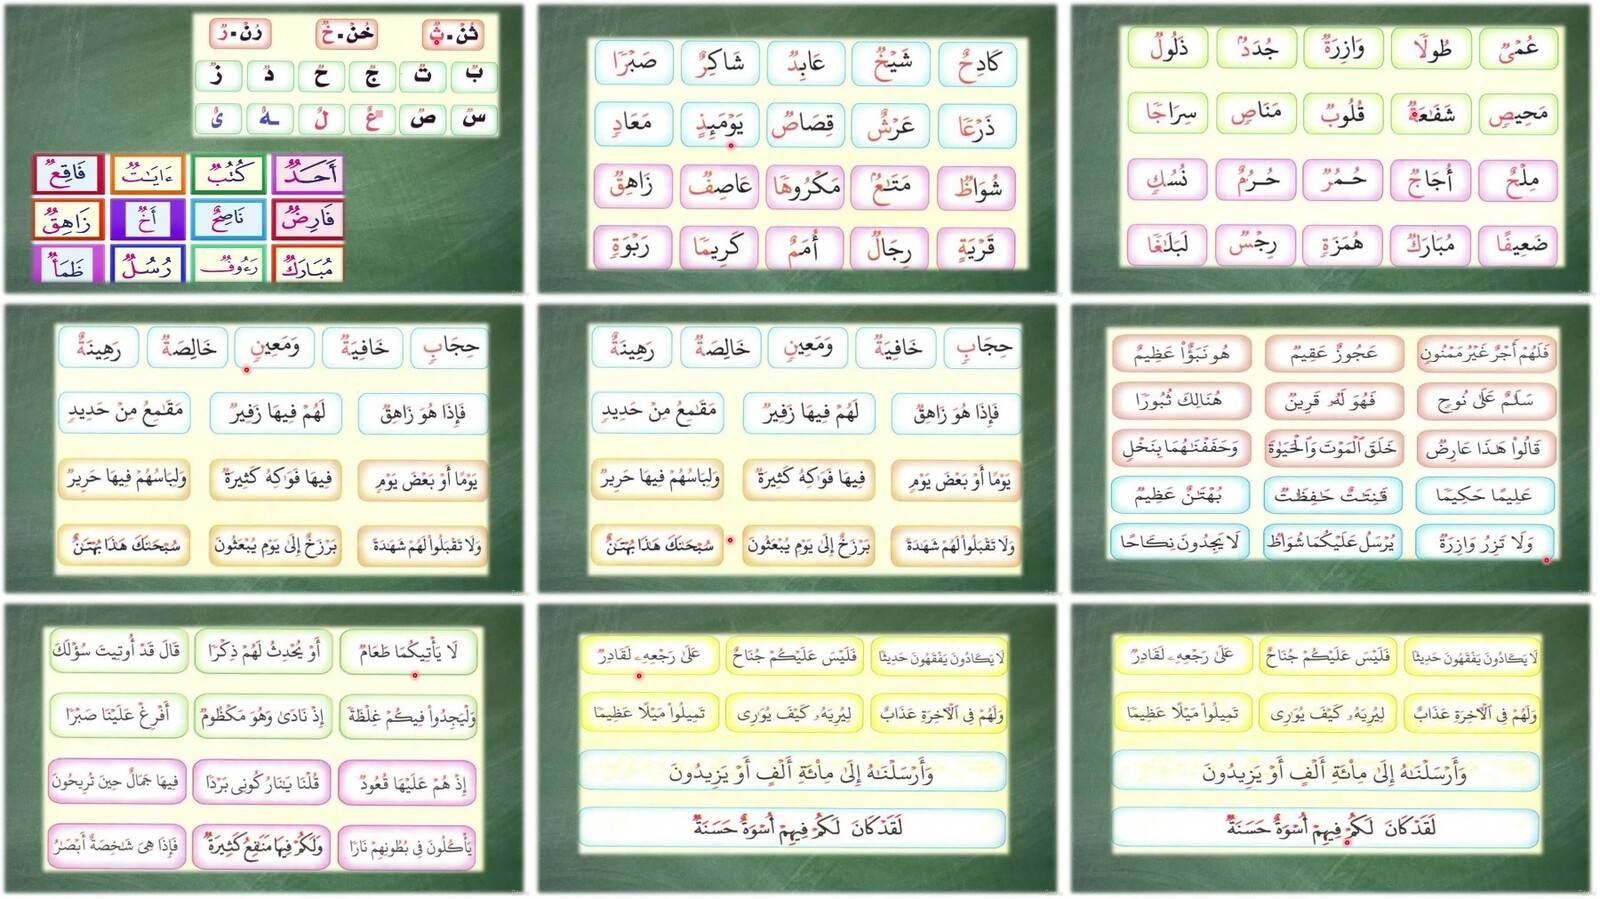 ثُنْ. ثٌ خُنْ. خٌ رُنْ. رٌ
بٌ تٌ جٌ حٌ دٌ زٌ
سٌ صٌ عٌ لٌ هٌ ئٌ
أَحَدٌ كُتُبٌ ءَايَٰتٌ فَاقِعٌ
فَارِضٌ نَاصِحٌ أَخٌ زَاهِقٌ
مُبَارَكٌ رَءُوفٌ رُسُلٌ ظَمَأٌ
كَادِحٌ شَيْخٌ عَابِدٌ شَاكِرٌ صَبْرًا
ذَرْعًا عَرْشٌ قِصَاصٌ يَوْمَئِذٍ مَعَادٍ
شُوَاظٌ مَتَٰعٌ مَكْرُوهًا عَاصِفٌ زَاهِقٌ
قَرْيَةٍ رِجَالٌ أُمَمٌ كَرِيمًا رَبْوَةٍ
عُمْيٌ طُولًا وَازِرَةٌ جُدَدٌ ذَلُولٌ
مَحِيصٍ شَفَٰعَةٌ قُلُوبٌ مَنَاصٍ سِرَاجًا
مِلْحٌ أُجَاجٌ حُمُرٌ حُرُمٌ نُسُكٍ
ضَعِيفًا مُبَارَكٌ هُمَزَةٍ رِجْسٌ لَبَلَٰغًا
حِجَابٍ خَافِيَةٌ وَمَعِينٍ خَالِصَةٌ رَهِينَةٌ
فَإِذَا هُوَ زَاهِقٌ لَهُمْ فِيهَا زَفِيرٌ مَقَٰمِعُ مِنْ حَدِيدٍ
يَوْمًا أَوْ بَعْضَ يَوْمٍ فِيهَا فَوَاكِهُ كَثِيرَةٌ وَلِبَاسُهُمْ فِيهَا حَرِيرٌ
وَلَا تَقْبَلُوا۟ لَهُمْ شَهَٰدَةً بَرْزَخٌ إِلَىٰ يَوْمِ يُبْعَثُونَ سُبْحَٰنَكَ هَٰذَا بُهْتَٰنٌ
حِجَابٍ خَافِيَةٌ وَمَعِينٍ خَالِصَةٌ رَهِينَةٌ
فَإِذَا هُوَ زَاهِقٌ لَهُمْ فِيهَا زَفِيرٌ مَقَٰمِعُ مِنْ حَدِيدٍ
يَوْمًا أَوْ بَعْضَ يَوْمٍ فِيهَا فَوَاكِهُ كَثِيرَةٌ وَلِبَاسُهُمْ فِيهَا حَرِيرٌ
وَلَا تَقْبَلُوا۟ لَهُمْ شَهَٰدَةً بَرْزَخٌ إِلَىٰ يَوْمِ يُبْعَثُونَ سُبْحَٰنَكَ هَٰذَا بُهْتَٰنٌ
فَلَهُمْ أَجْرٌ غَيْرُ مَمْنُونٍ عَجُوزٌ عَقِيمٌ هُوَ نَبَؤٌا۟ عَظِيمٌ
سَلَٰمٌ عَلَىٰ نُوحٍ فَهُوَ لَهُۥ قَرِينٌ هُنَالِكَ ثُبُورًا
قَالُوا۟ هَٰذَا عَارِضٌ خَلَقَ ٱلْمَوْتَ وَٱلْحَيَوٰةَ وَحَفَفْنَٰهُمَا بِنَخْلٍ
عَلِيمًا حَكِيمًا قَٰنِتَٰتٌ حَٰفِظَٰتٌ بُهْتَٰنٌ عَظِيمٌ
وَلَا تَزِرُ وَازِرَةٌ يُرْسَلُ عَلَيْكُمَا شُوَاظٌ لَا يَجِدُونَ نِكَاحًا
لَا يَأْتِيكُمَا طَعَامٌ أَوْ يُحْدِثُ لَهُمْ ذِكْرًا قَالَ قَدْ أُوتِيتَ سُؤْلَكَ
وَلْيَجِدُوا۟ فِيكُمْ غِلْظَةً إِذْ نَادَىٰ وَهُوَ مَكْظُومٌ أَفْرِغْ عَلَيْنَا صَبْرًا
إِذْ هُمْ عَلَيْهَا قُعُودٌ قُلْنَا يَٰنَارُ كُونِى بَرْدًا فِيهَا جَمَالٌ حِينَ تُرِيحُونَ
يَأْكُلُونَ فِى بُطُونِهِمْ نَارًا وَلَكُمْ فِيهَا مَنَٰفِعُ كَثِيرَةٌ فَإِذَا هِىَ شَٰخِصَةٌ أَبْصَٰرُ
لَا يَكَادُونَ يَفْقَهُونَ حَدِيثًا فَلَيْسَ عَلَيْكُمْ جُنَاحٌ عَلَىٰ رَجْعِهِۦ لَقَادِرٌ
وَلَهُمْ فِى ٱلْآخِرَةِ عَذَابٌ لِيُرِيَهُۥ كَيْفَ يُوَٰرِى تَمِيلُوا۟ مَيْلًا عَظِيمًا
وَأَرْسَلْنَٰهُ إِلَىٰ مِا۟ئَةِ أَلْفٍ أَوْ يَزِيدُونَ
لَقَدْ كَانَ لَكُمْ فِيهِمْ أُسْوَةٌ حَسَنَةٌ
لَا يَكَادُونَ يَفْقَهُونَ حَدِيثًا فَلَيْسَ عَلَيْكُمْ جُنَاحٌ عَلَىٰ رَجْعِهِۦ لَقَادِرٌ
وَلَهُمْ فِى ٱلْآخِرَةِ عَذَابٌ لِيُرِيَهُۥ كَيْفَ يُوَٰرِى تَمِيلُوا۟ مَيْلًا عَظِيمًا
وَأَرْسَلْنَٰهُ إِلَىٰ مِا۟ئَةِ أَلْفٍ أَوْ يَزِيدُونَ
لَقَدْ كَانَ لَكُمْ فِيهِمْ أُسْوَةٌ حَسَنَةٌ